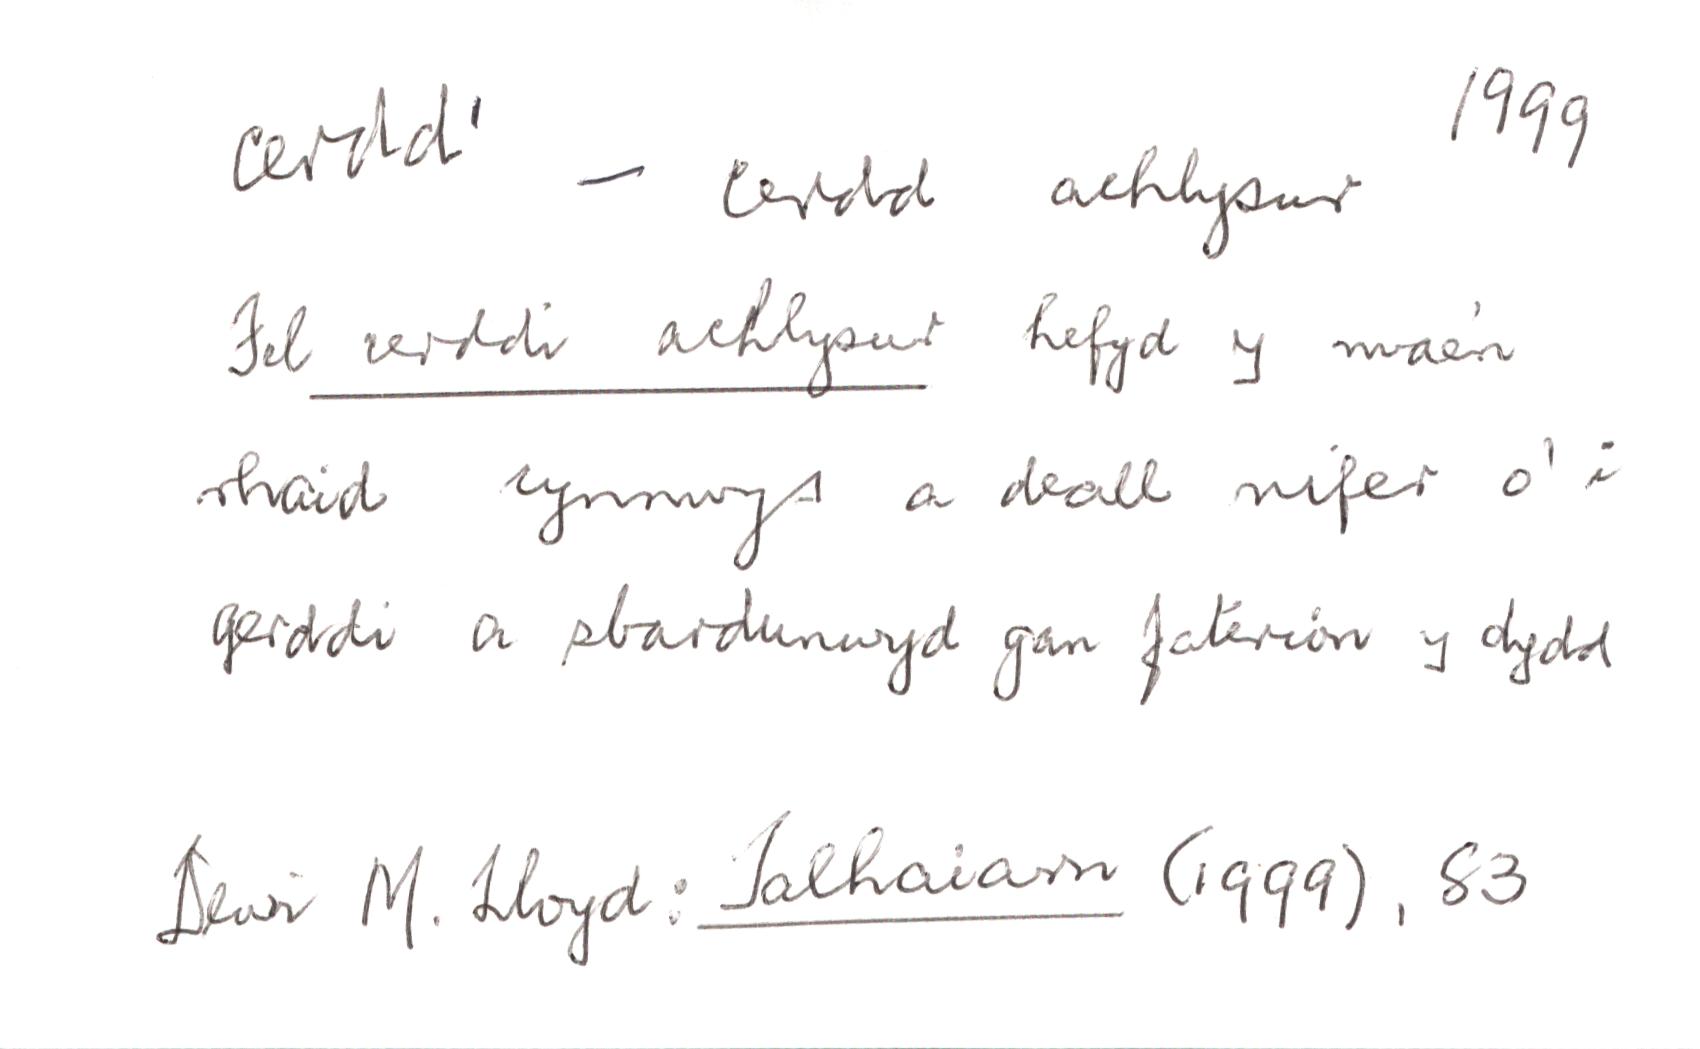 cerdd¹ — cerdd achlysur 1999
Fel cerddi achlysur hefyd y mae'n
rhaid cynnwys a deall nifer o'i
gerddi a sbardunwyd gan faterion y dydd
Dewi M. Lloyd: Talhaiarn (1999), 83